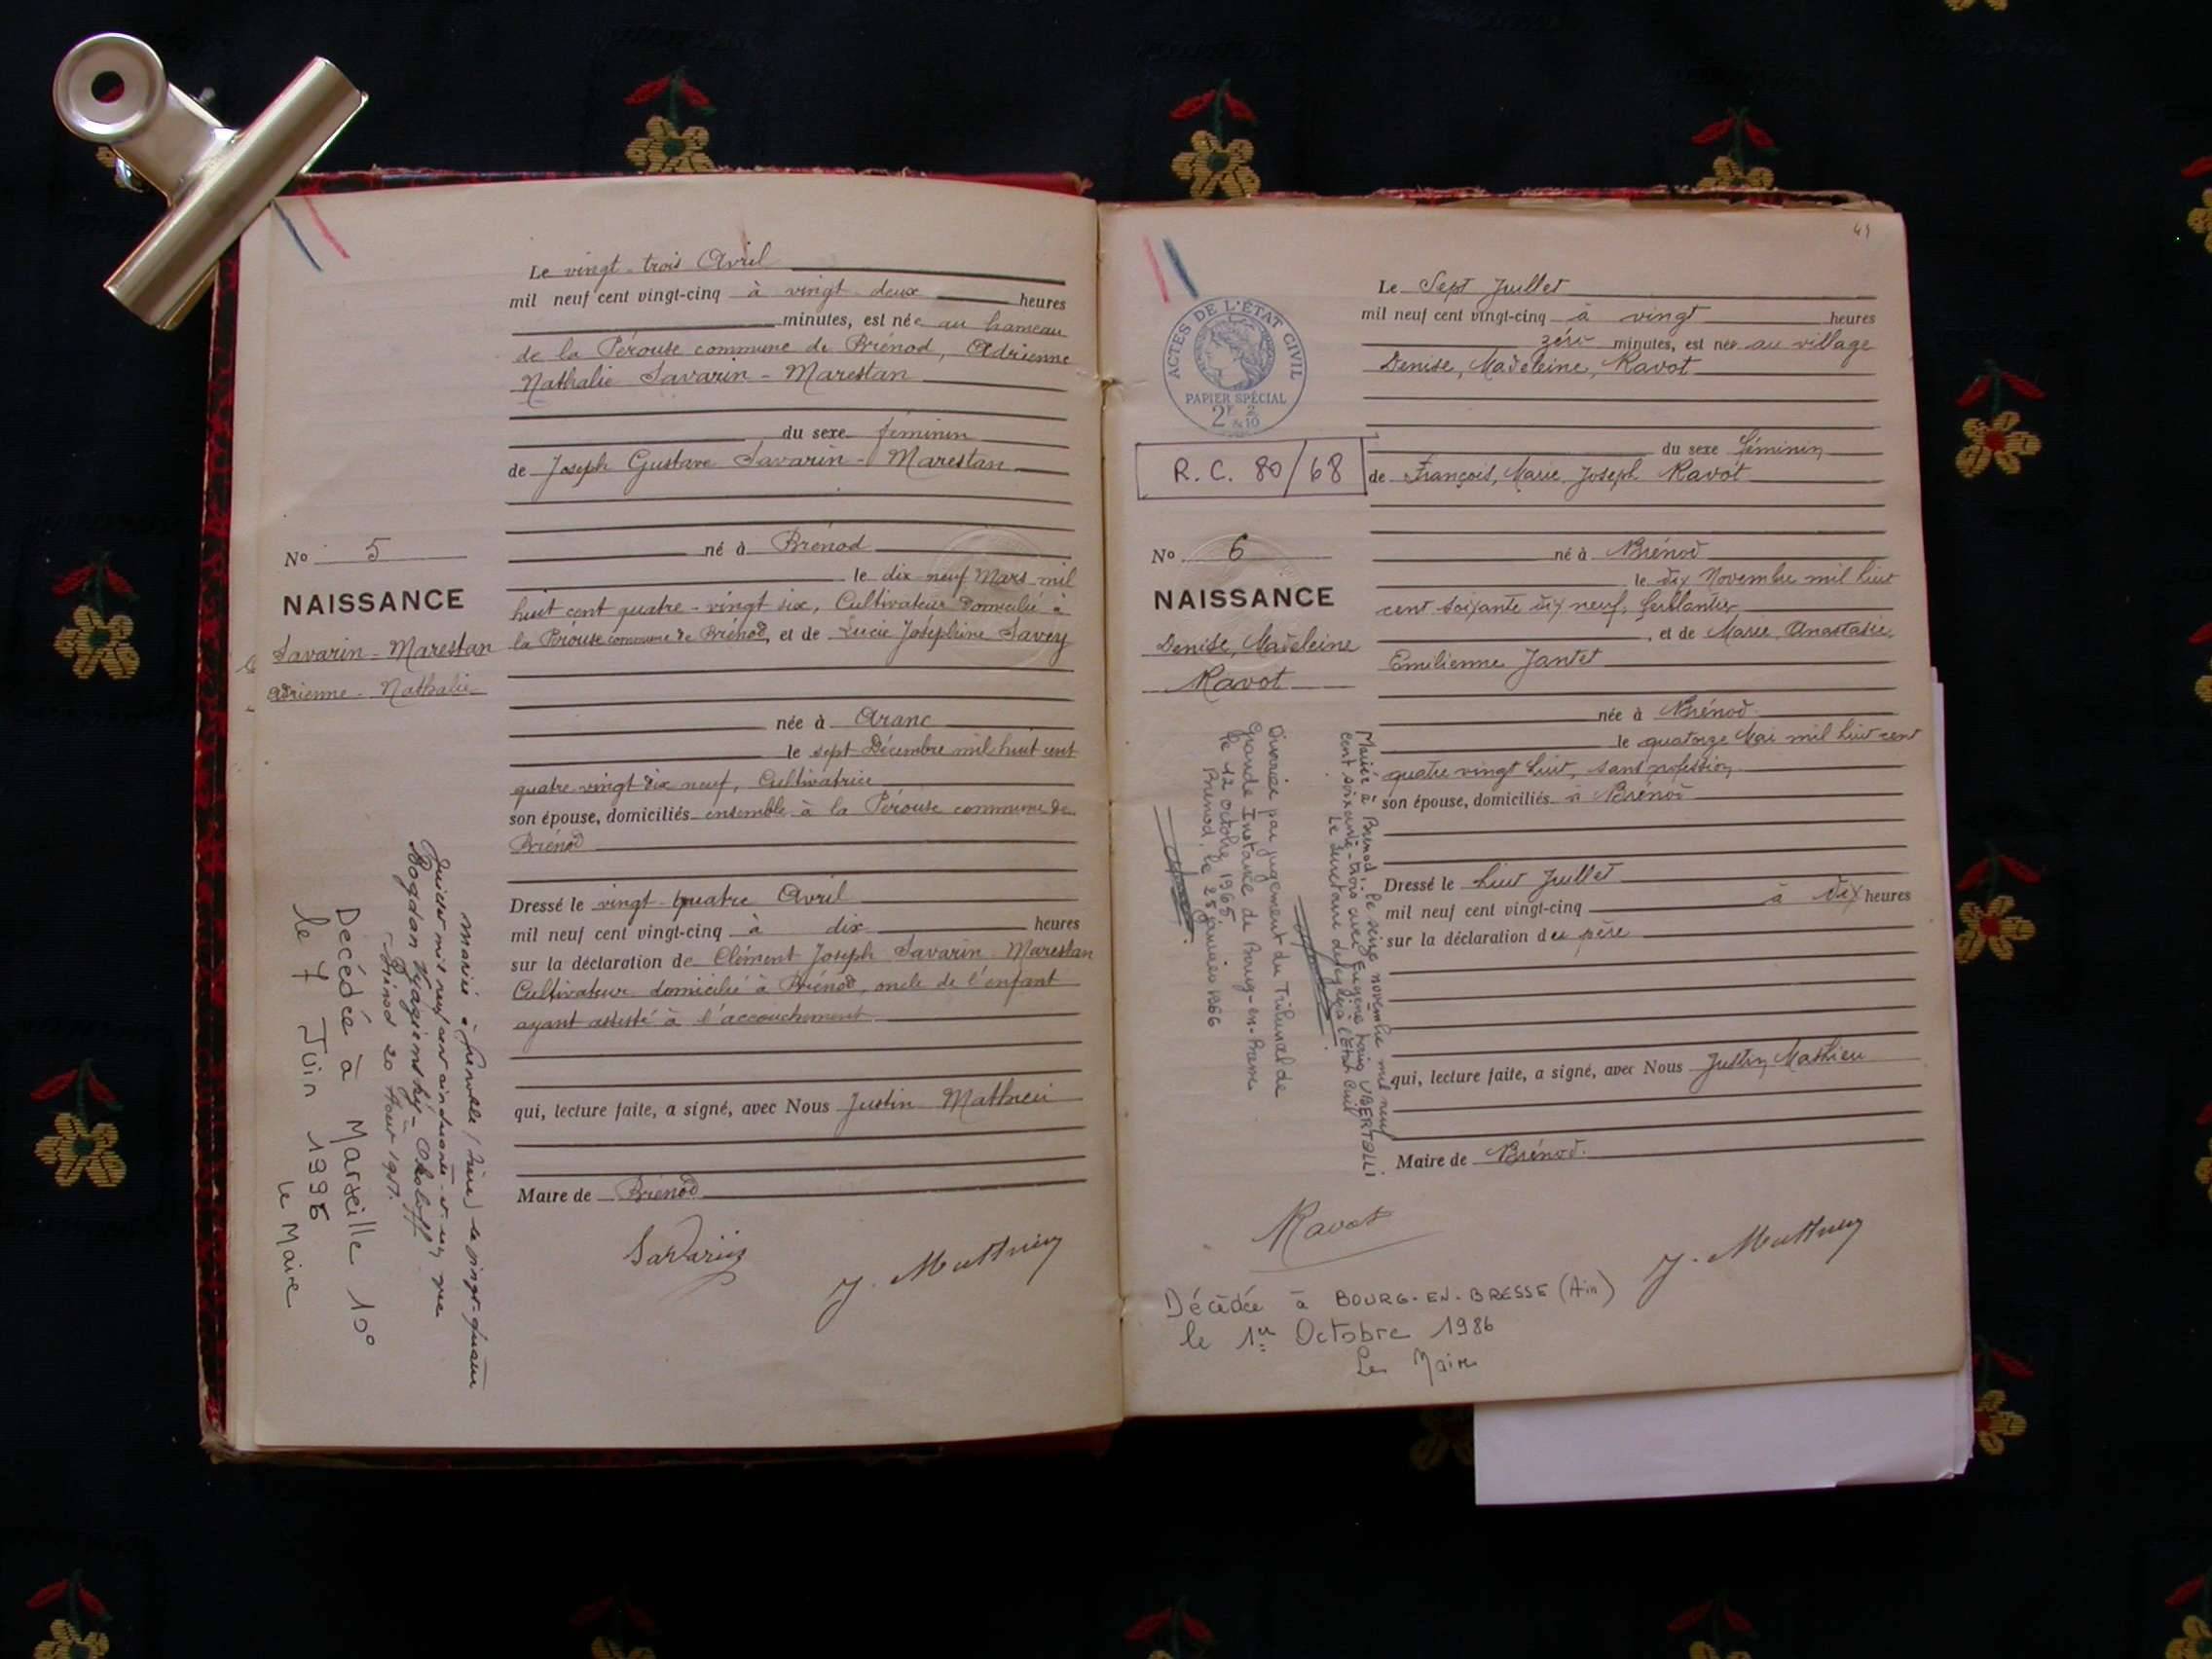 Le vingt-trois Avril
mil neuf cent vingt-cinq à vingt deux heures
minutes, est née au hameau
de la Pérouse commune de Brénod, Adrienne
Nathalie Savarin-Marestan
du sexe féminin
de Joseph Gustave Savarin-Marestan
né à Brénod
le dix neuf Mars mil
huit cent quatre-vingt six, Cultivateur domicilié à
la Pérouse commune de Brénod, et de Lucie Joséphine Savey
née à Aranc
le sept Décembre mil huit cent
quatre vingt dix neuf, Cultivatrice
son épouse, domiciliés ensemble à la Pérouse commune de
Brénod
Dressé le vingt-quatre Avril
mil neuf cent vingt-cinq à dix heures
sur la déclaration de Clément Joseph Savarin-Marestan
Cultivateur domicilié à Brénod, oncle de l'enfant
ayant assisté à l'accouchement
qui, lecture faite, a signé, avec Nous Justin Mathieu
Maire de Brénod
Savarin
J. Mathieu
No 5
NAISSANCE
Savarin-Marestan
Adrienne-Nathalie
Mariée à Grenoble (Isère) le vingt-quatre
juillet mil neuf cent cinquante et un avec
Bogdan
Brénod 20 Août 1951.
Décédée à Marseille 10°
le 7 Juin 1996
Le Maire
49
Le Sept Juillet
mil neuf cent vingt-cinq à vingt heures
zéro minutes, est née au village
Denise, Madeleine, Ravot
du sexe féminin
de François, Marie, Joseph Ravot
né à Brénod
le dix Novembre mil huit
cent soixante dix neuf, ferblantier
, et de Marie, Anastasie,
Emilienne Jantet
née à Brénod
le quatorze Mai mil huit cent
quatre vingt huit, sans profession
son épouse, domiciliés à Brénod
Dressé le huit Juillet
mil neuf cent vingt-cinq à dix heures
sur la déclaration du père
qui, lecture faite, a signé, avec Nous Justin Mathieu
Maire de Brénod.
Ravot
J. Mathieu
ACTES DE L'ÉTAT CIVIL
PAPIER SPÉCIAL
2F & 2/10
R.C. 80/68
No 6
NAISSANCE
Denise, Madeleine
Ravot
Mariée à Brénod, le seize novembre mil neuf
cent soixante-trois avec Eugène UBERTALLI
Le secrétaire délégué à l'Etat Civil
Divorcée par jugement du Tribunal de
Grande Instance de Bourg-en-Bresse
le 12 octobre 1965.
Brénod, le 25 janvier 1966
Décédée à BOURG-EN-BRESSE (Ain)
le 1er Octobre 1986
Le Maire